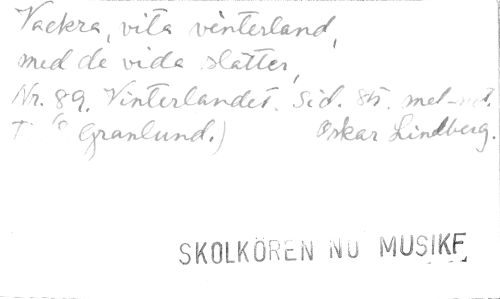 Vackra, vita vinterland,
med de vida slätter,
Nr. 89. Vinterlandet. Sid. 85. mel-not.
T. Granlund.) Oskar Lindberg.
SKOLKÖREN NU MUSIKF